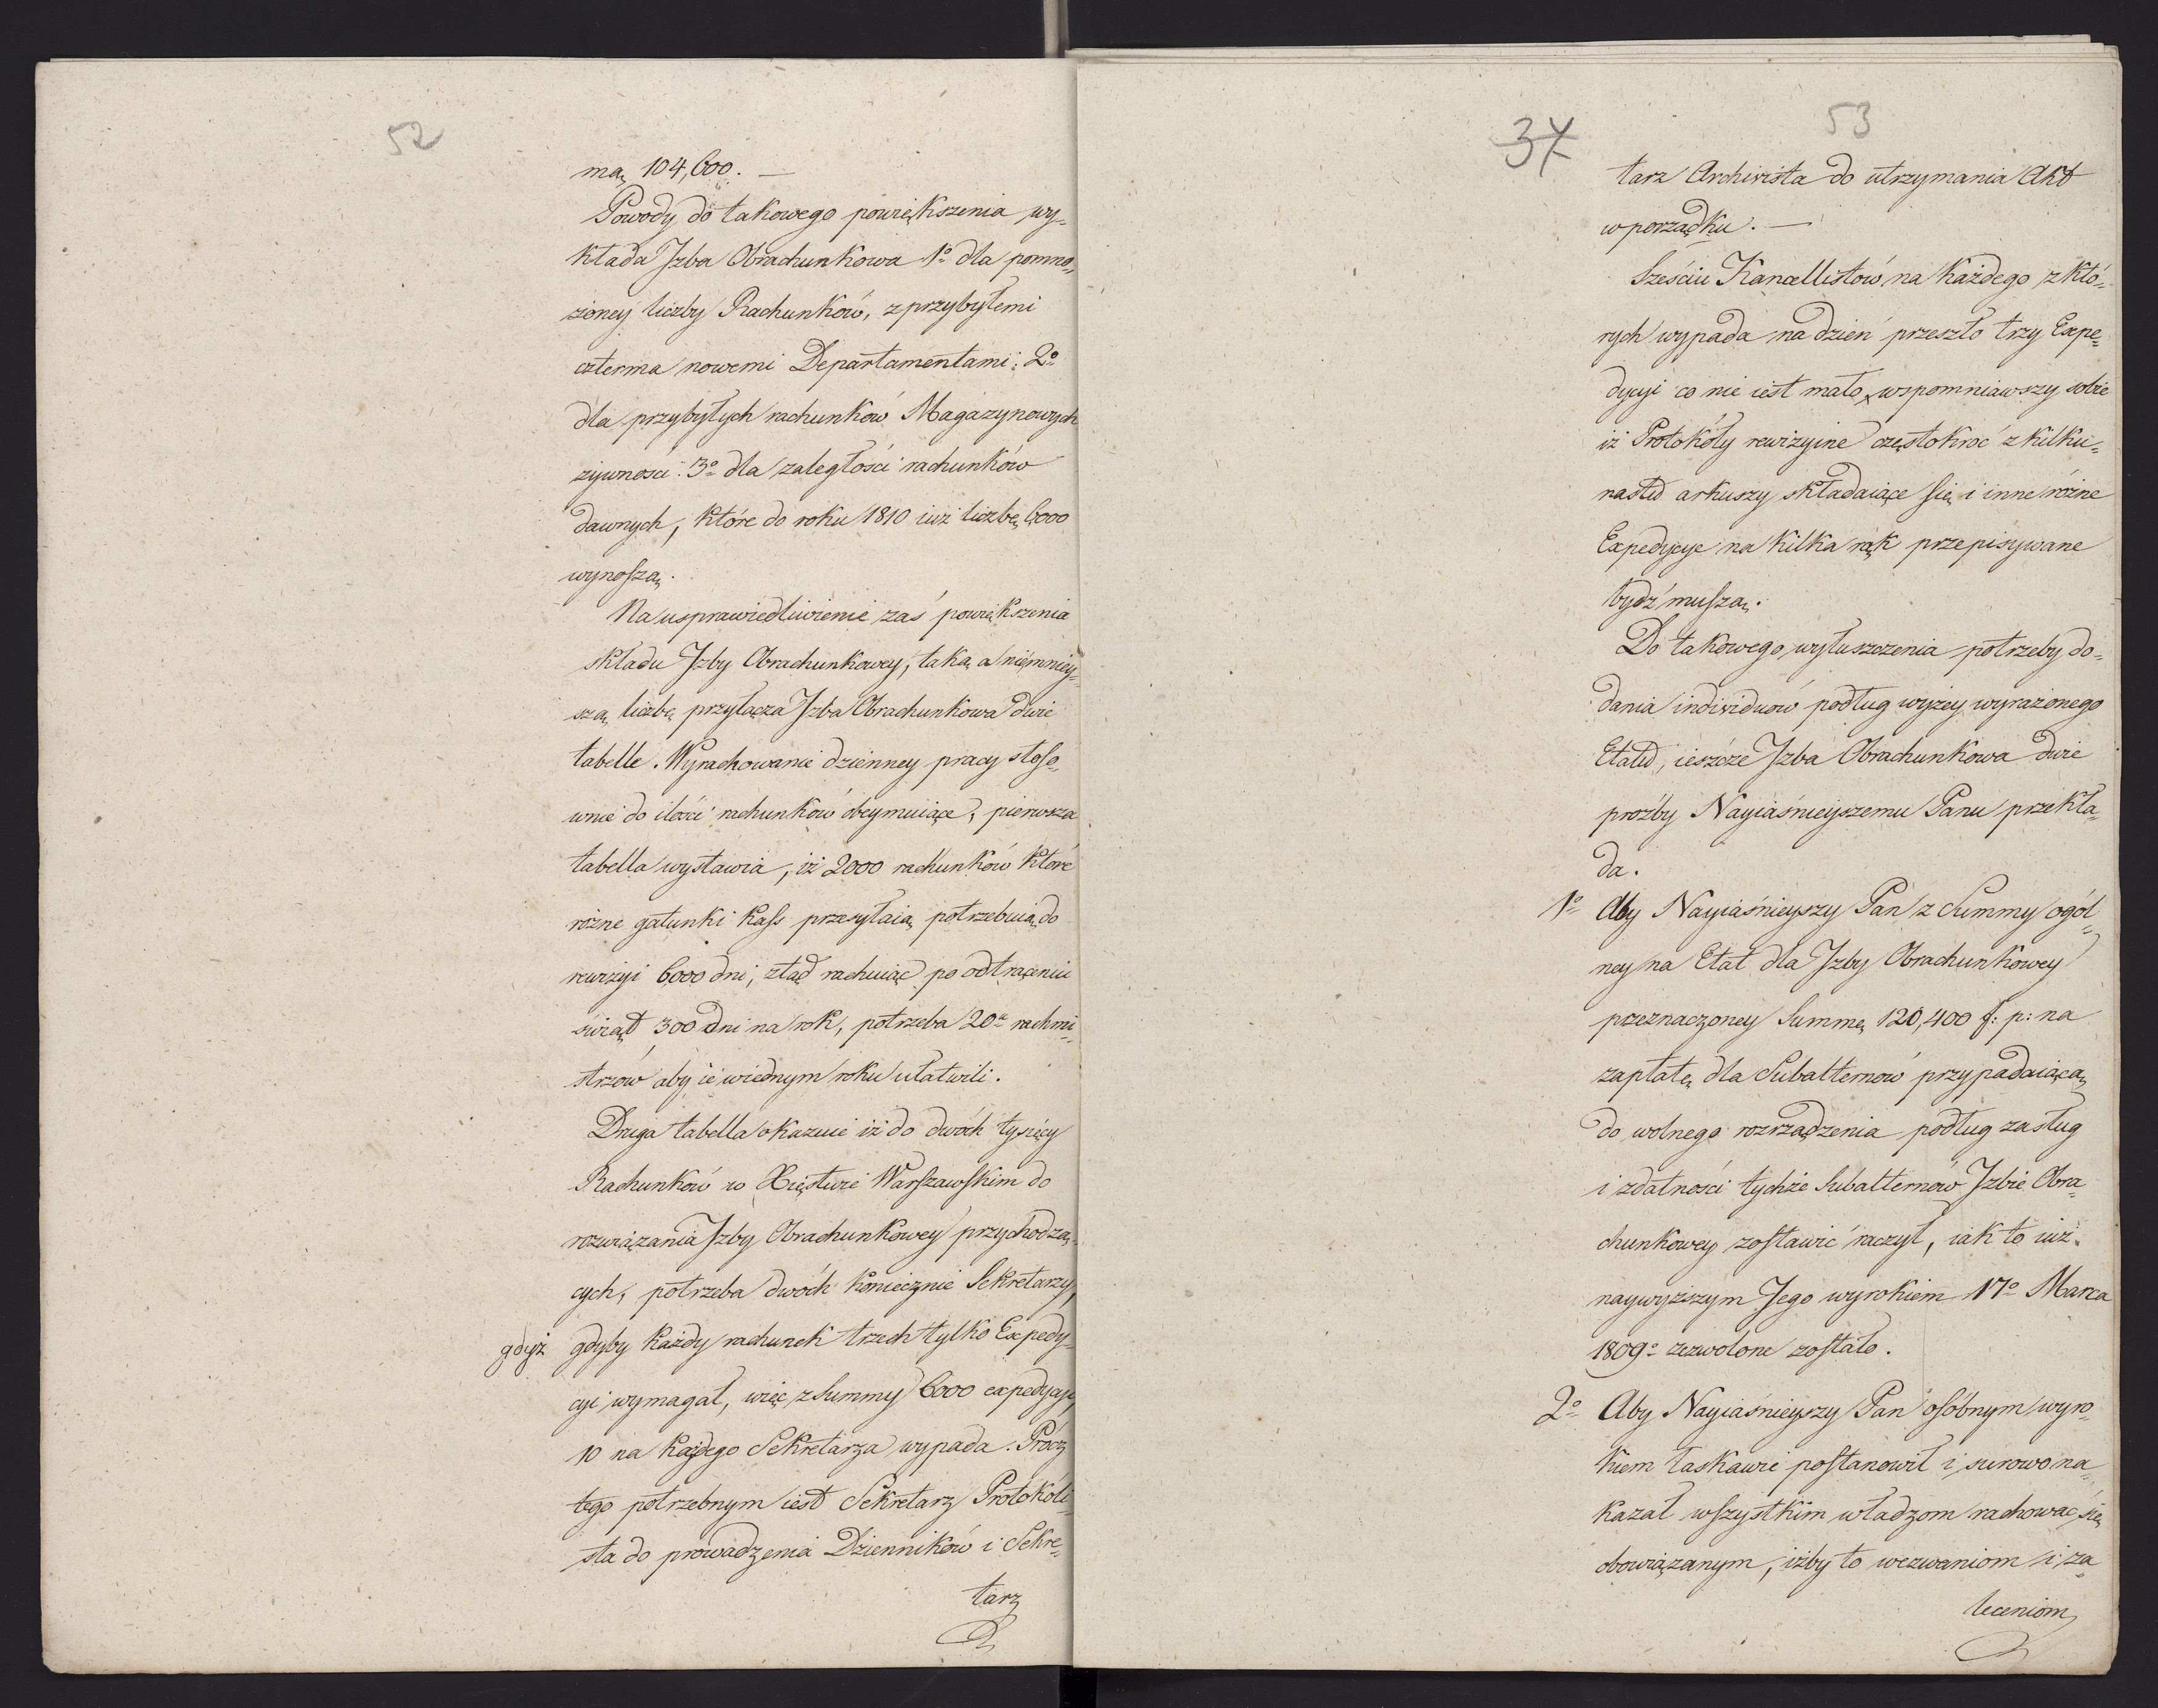 52
mą 104,600. —
Powody do takowego powiększenia wy„
kłada Jzba Obrachunkowa 1º dla pomno„
żoney liczby Rachunków, z przybyłemi
czterma nowemi Departamentami: 2º
dla przybyłych rachunków Magazynowych
żywności: 3º dla zaległości rachunków
dawnych, które do roku 1810 iuż liczbę 6000
wynoszą.
Na usprawiedliwienie zaś powiększenia
składu Jzby Obrachunkowey, taką a niemniey„
szą liczbę przyłącza Jzba Obrachunkowa dwie
tabelle. Wyrachowanie dzienney pracy stoso„
wnie do ilości rachunków obeymuiące, pierwsza
tabella wystawia, iż 2000 rachunków które
różne gatunki Kass przesyłaią potrzebuią do
rewizyi 6000 dni, ztąd rachuiąc po odtrąceniu
świąt 300 dni na rok, potrzeba 20u rachmi„
strzów aby ie wiednym roku ułatwili.
Druga tabella okazuie iż do dwóch tysięcy
Rachunków w Xięstwie Warszawskim do
rozwiązania Jzby Obrachunkowey przychodzą„
cych, potrzeba dwóch koniecznie Sekretarzy,
gdyż gdyby każdy rachunek trzech tylko Expedy„
cyi wymagał, więc z Summy 6000 expedycyi,
10 na każdego Sekretarza wypada. Prócz
tego potrzebnym iest Sekretarz Protokoli„
sta do prowadzenia Dzienników i Sekre„
tarz
37
53
tarz Archivista do utrzymania Akt
w porządku. —
Sześciu Kancellistów, na każdego z któ„
rych wypada na dzień przeszło trzy Expe„
dycyi co nie iest mało, wspomniawszy sobie
iż Protokóły rewizyine częstokroć z kilku„
nastu arkuszy składaiące się i inne różne
Expedycye na kilka rąk przepisywane
bydź muszą.
Do takowego wyłuszczenia potrzeby do„
dania individuów podług wyżey wyrażonego
Etatu, ieszcze Jzba Obrachunkowa dwie
proźby Nayiaśnieyszemu Panu przekła„
da.
1º Aby Nayiaśnieyszy Pan z Summy ogól„
ney na Etat dla Jzby Obrachunkowey
przeznaczoney Summę 120,400 f: p: na
zapłatę dla Subalternów przypadaiącą
do wolnego rozrządzenia podług zasług
i zdatności tychże Subalternów Jzbie Obra„
chunkowey zostawić raczył, iak to iuż
naywyższym Jego wyrokiem 17º Marca
1809º zezwolone zostało.
2º Aby Nayiaśnieyszy Pan osóbnym wyro„
kiem łaskawie postanowił i surowo na„
kazał wszystkim władzom rachować się
obowiązanym, iżby to wezwaniom i za„
leceniom